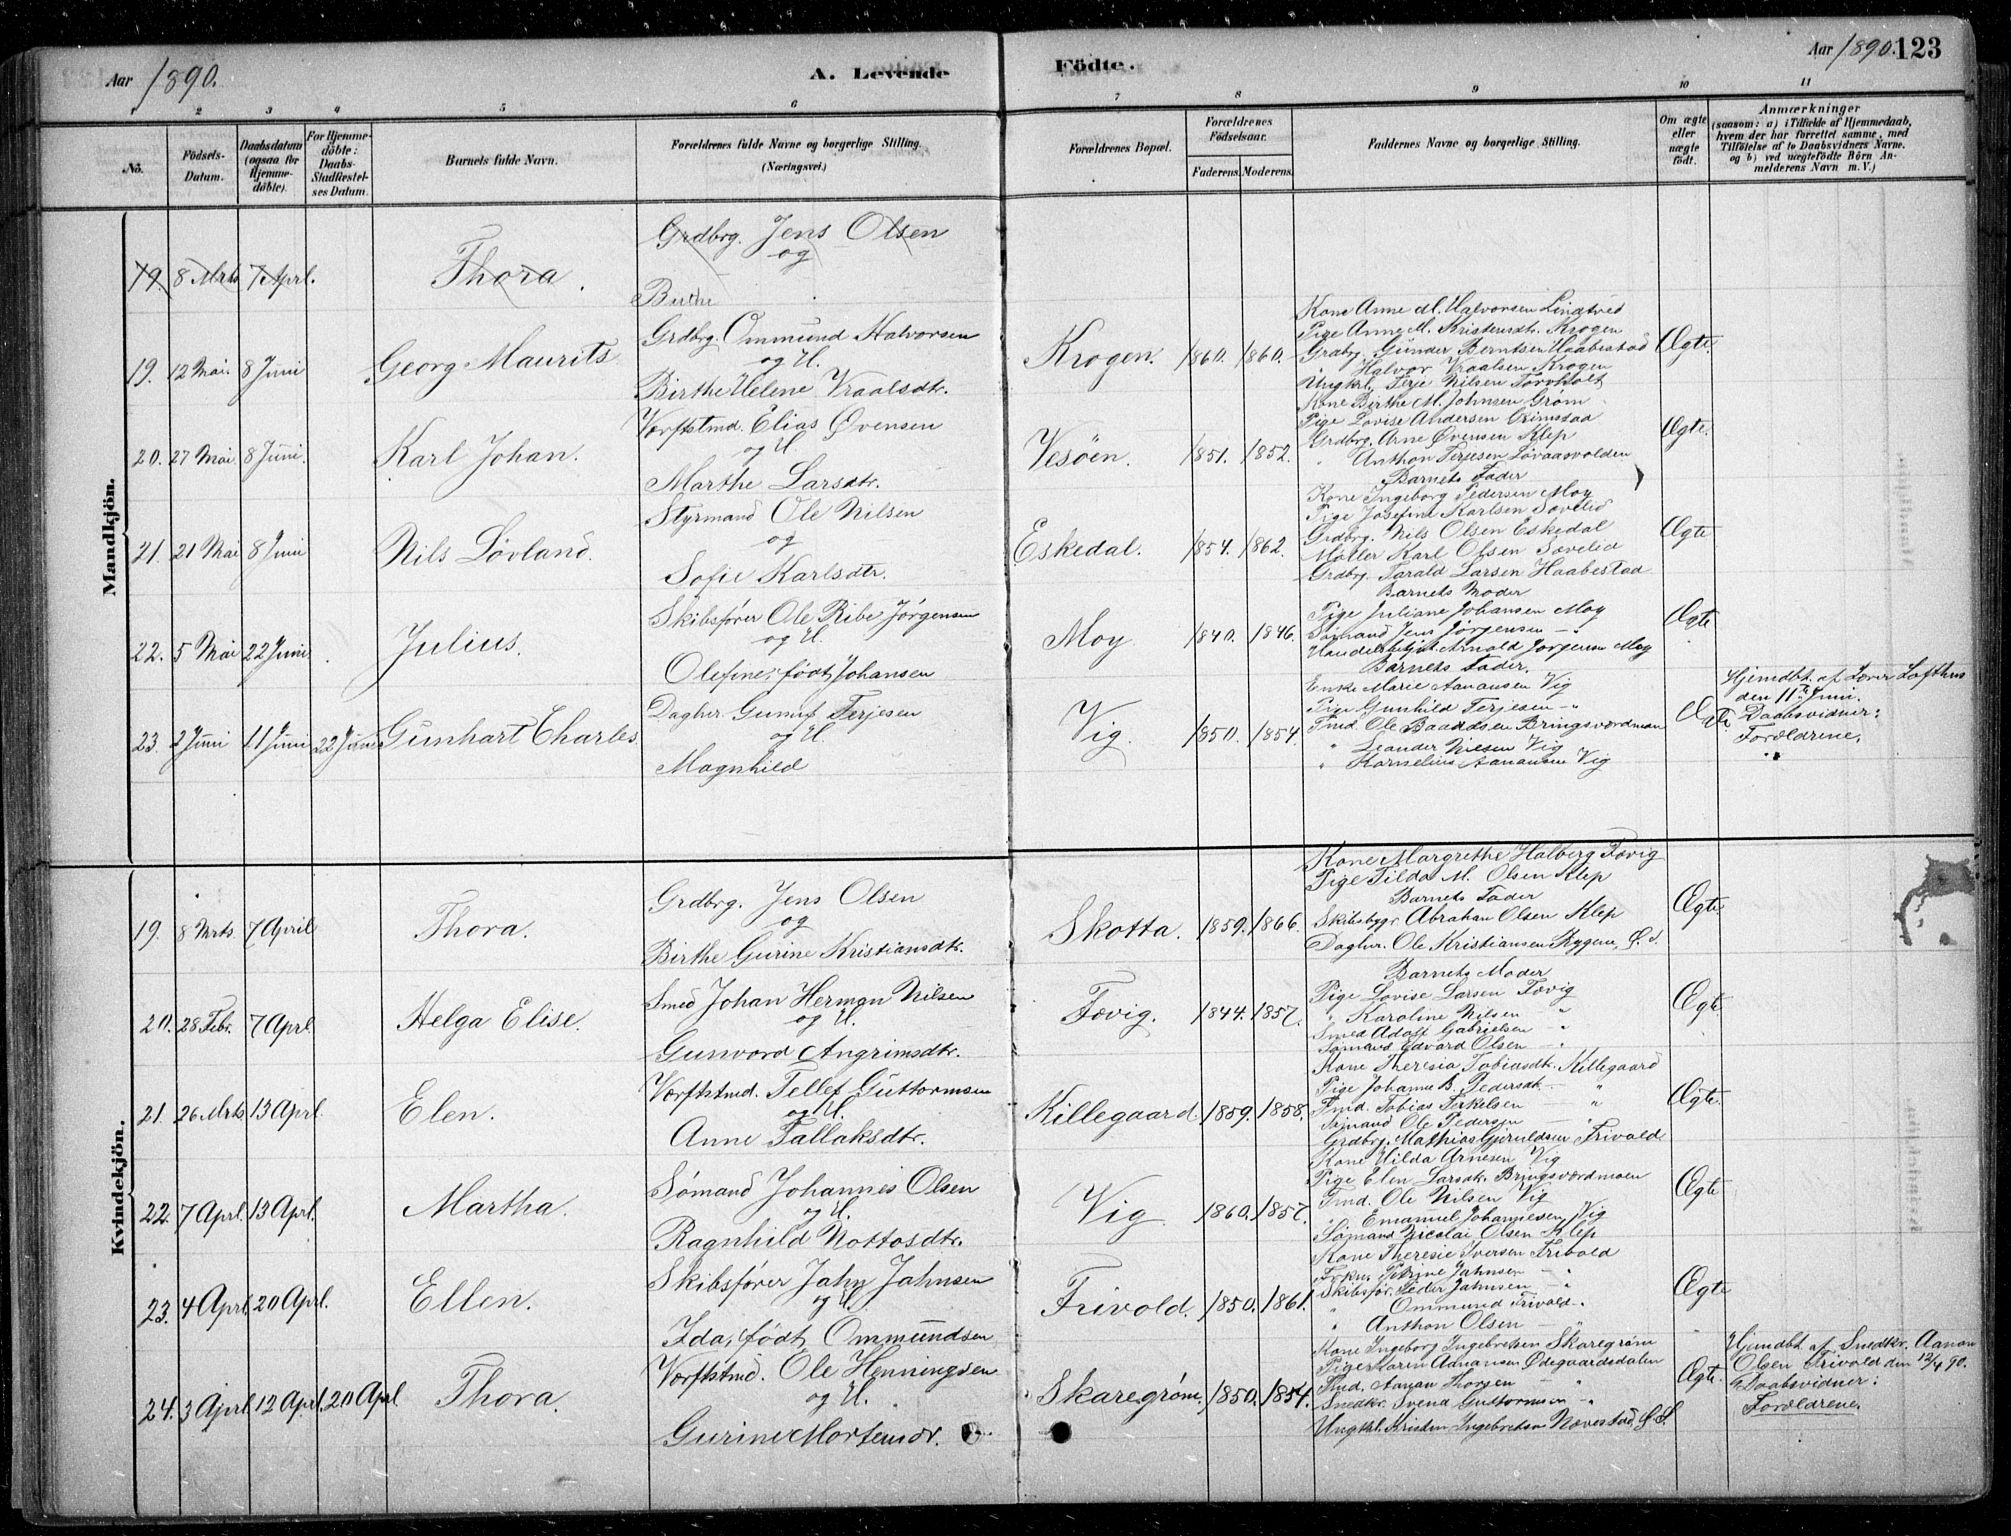 Aar 1890.
A. Levende Födte.
Aar 1890. 123
1 2 3 4 5 6 7 8 9 10 11
No.
Födsels-Datum.
Daabsdatum (ogsaa for Hjemme-döbte).
For Hjemme-döbte: Daabs-Stadfæstel-ses Datum.
Barnets fulde Navn.
Forældrenes fulde Navne og borgerlige Stilling. (Næringsvei.)
Forældrenes Bopæl.
Forældrenes Födselsaar.
Faderens. Moderens.
Faddernes Navne og borgerlige Stilling.
Om ægte eller uægte födt.
Anmærkninger
(saasom: a) i Tilfælde af Hjemmedaab, hvem der har forrettet samme, med Tilföielse af to Daabsvidners Navne. og b) ved uægtefödte Börn An-melderens Navn m. V.)
Mandkjön.
19. 8 Mrts 7 Aprl. Thora. Grdbrg. Jens Olsen
og
Birthe
19. 12 Mai. 8 Juni Georg Maurits
Grdbrg. Ommund Halvorsen
og H.
Birthe Helene Vraalsdtr.
Krogen. 1860. 1860.
Kone Anne M. Halvorsen Lindtved
Pige Anne M. Kristensdtr. Krogen
Grdbrg. Gunder Berntsen Haabestad
" Halvor Vraalsen Krogen
Ungkrl. Terje Nilsen Torvholt
Ægte.
20. 27 Mai 8 Juni. Karl Johan.
Værftstmd. Elias Øvensen
og H
Marthe Larsdtr.
Vesöen. 1851. 1852.
Kone Birthe M. Johnsen Grøm
Pige Lovise Andersen Grimstad
Grdbrg. Arne Øvensen Klep
" Anthon Terjesen Løvaasvolden
Barnets Fader
Ægte.
21. 21 Mai 8 Juni Nils Lövland.
Styrmand Ole Nilsen
og
Sofie Karlsdtr.
Eskedal. 1854. 1862.
Kone Ingeborg Pedersen Moy
Pige Josefine Karlsen Sævelid
Grdbrg. Nils Olsen Eskedal
Møller Karl Olsen Sævelid
Grdbrg. Tarald Larsen Haabestad
Ægte
22. 5 Mai 22 Juni. Julius.
Skibsfører Ole Ribe Jørgensen
og H.
Olefine, født Johansen
Moy 1840. 1846.
Barnets Moder
Pige Juliane Johansen Moy
Sømand Jens Jørgensen — "
Handelsbetjt. Arnold Jørgensen Moy
Barnets Fader.
Ægte
23. 2 Juni 11 Juni 22 Juni Gunhart Charles
Daglnr. Gunuf Terjesen
og H.
Magnhild
Vig. 1850. 1854.
Enke Marie Aanansen Vig
Pige Gunhild Terjesen — "
Tmd. Ole Baardsen Bringsværdmoen
" Leander Nilsen Vig
" Kornelius Aanansen Vig
Ægte
Hjemdbt. af Lærer Lofthus
den 11te Juni.
Daabsvidner:
Forældrene.
Kvindekjön.
19. 8 Mrts. 7 April Thora.
Grdbrg. Jens Olsen
og
Birthe Gurine Kristiansdtr.
Skotta. 1859. 1866.
Kone Margrethe Halberg Fævig
Pige Tilda M. Olsen Klep
Barnets Fader
Skibsbygr. Abrahan Olsen Klep
Daglnr. Ole Kristiansen Rygene, Ø. S.
Ægte
20. 28 Febr. 7 Aprl. Helga Elise.
Smed Johan Herman Nilsen
og H.
Gunvord Angrimsdtr.
Fævig. 1844. 1857.
Barnets Moder
Pige Lovise Larsen Fævig
" Karoline Nilsen "
Smed Adolf Gabrielsen — "
Sømand Edvard Olsen — "
Ægte
21. 26 Mrts 13 Aprl. Elen.
Værftstmd. Tellef Guttormsen
og H.
Anne Tallaksdtr.
Killegaard. 1859. 1858.
Kone Theresia Tobiasdtr. Killegaard
Pige Johanne B. Pedersdtr. — "
Tmd. Tobias Terkelsen — "
Sømand Ole Pedersen — "
Grdbrg. Mathias Gjeruldsen Frivold
Ægte.
22. 7 Aprl. 13 Aprl. Martha.
Sømand Johannes Olsen
og H.
Ragnhild Nottosdtr.
Vig 1860. 1857.
Kone Hilda Arnesen Vig
Pige Elen Larsdtr. Bringsværdmoen
Tmd. Ole Nilsen Vig
" Emanuel Johannesen Vig
Sømand Nicolai Olsen Klep
Ægte
23. 4 Aprl. 20 Aprl. Ellen.
Skibsfører Jahn Jahnsen
og H.
Ida, født Ommundsen
Frivold. 1850. 1861.
Kone Theresie Iversen Frivold
Frkn. Petrine Jahnsen — "
Skibsfør. Peder Jahnsen — "
" Ommund Frivold. "
" Anthon Olsen — "
Ægte
24. 3 Aprl. 12 Aprl. 20 Aprl. Thora.
Værftstmd. Ole Henningsen
og H.
Gurine Mortensdr.
Skaregrøm 1850. 1854.
Kone Ingeborg Ingebretsen Skaregrøm
Pige Karen Aanansen Ødegaardsdalen
Tmd. Aanan Thorsen — "
Snedkr. Svend Guttormsen — "
Ungkl. Kristen Ingebretsen Nævestad, Ø. S.
Ægte.
Hjemdbt. af Snedkr. Aanon
Olsen Frivold den 12/4 90.
Daabsvidner:
Forældrene.